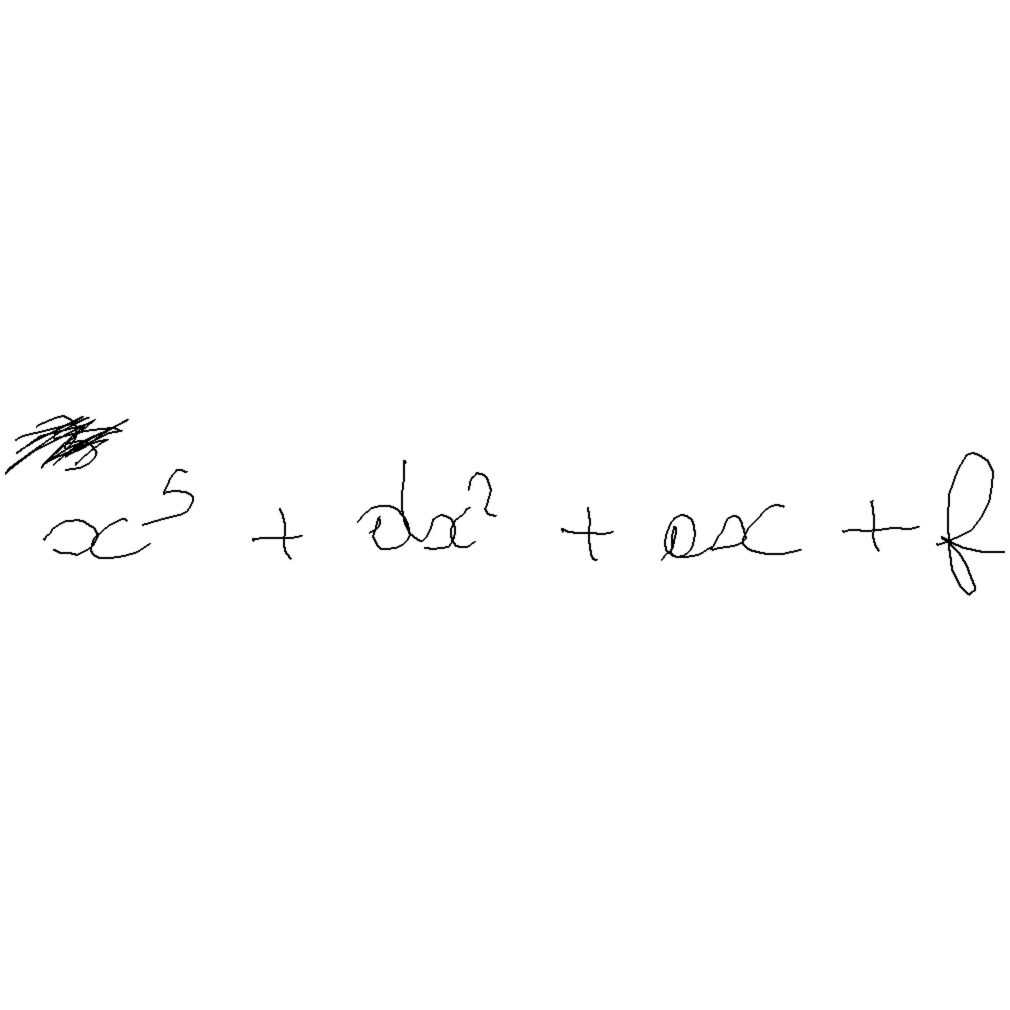 x⁵ + dx² + ex + f